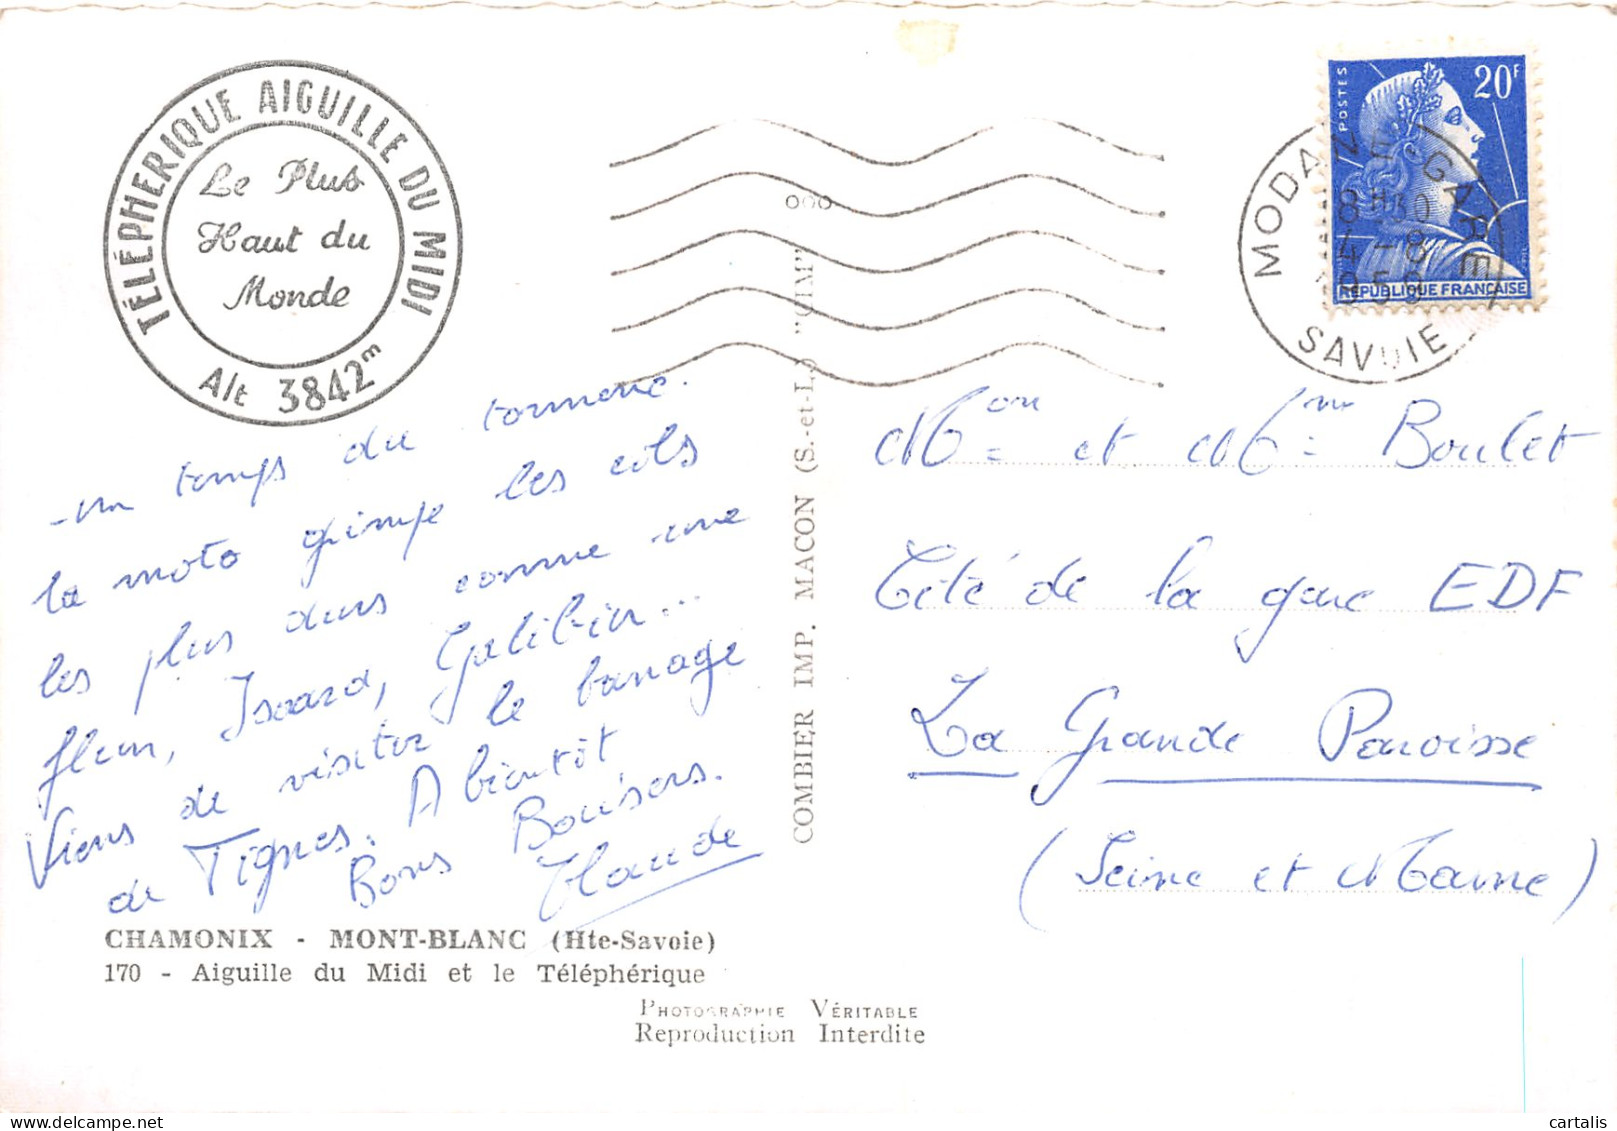 TÉLÉPHERIQUE AIGUILLE DU MIDI
Le Plus
Haut du
Monde
Alt 3842m
POSTES
20F
REPUBLIQUE FRANÇAISE
MODANE-GARE
8H30
4-8
959
SAVOIE
- un temps du tonnerre.
la moto grimpe les cols
les plus durs comme une
fleur, Isoard, Galibier...
Viens de visiter le barrage
de Tignes. A bientôt
Bons Baisers.
Claude
Mon= et Mme= Boulet
Cité de la gare EDF
La Grande Paroisse
(Seine et Marne)
COMBIER IMP. MACON (S.-et-L.) "CIM"
CHAMONIX - MONT-BLANC (Hte-Savoie)
170 - Aiguille du Midi et le Téléphérique
PHOTOGRAPHIE VÉRITABLE
Reproduction Interdite
cartalis